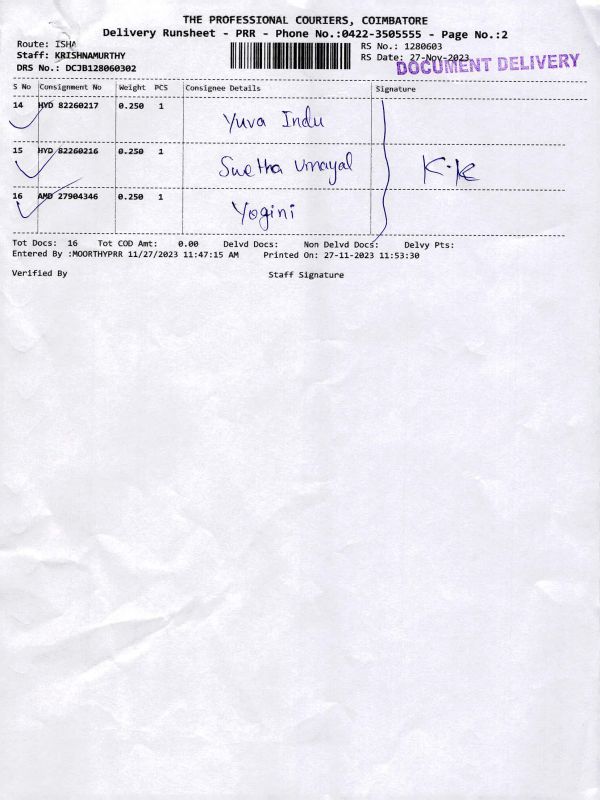 THE PROFESSIONAL COURIERS, COIMBATORE
Delivery Runsheet - PRR - Phone No.:0422-3505555 - Page No.:2
Route: ISHA
Staff: KRISHNAMURTHY
DRS No.: DCJB128060302
RS No.: 1280603
RS Date: 27-Nov-2023
DOCUMENT DELIVERY
S No Consignment No Weight PCS Consignee Details Signature
14 HYD 82260217 0.250 1 Yuva Indu
15 HYD 82260216 0.250 1 Swetha Umayal K.K
16 AMD 27904346 0.250 1 Yogini
Tot Docs: 16 Tot COD Amt: 0.00 Delvd Docs: Non Delvd Docs: Delvy Pts:
Entered By :MOORTHYPRR 11/27/2023 11:47:15 AM Printed On: 27-11-2023 11:53:30
Verified By Staff Signature